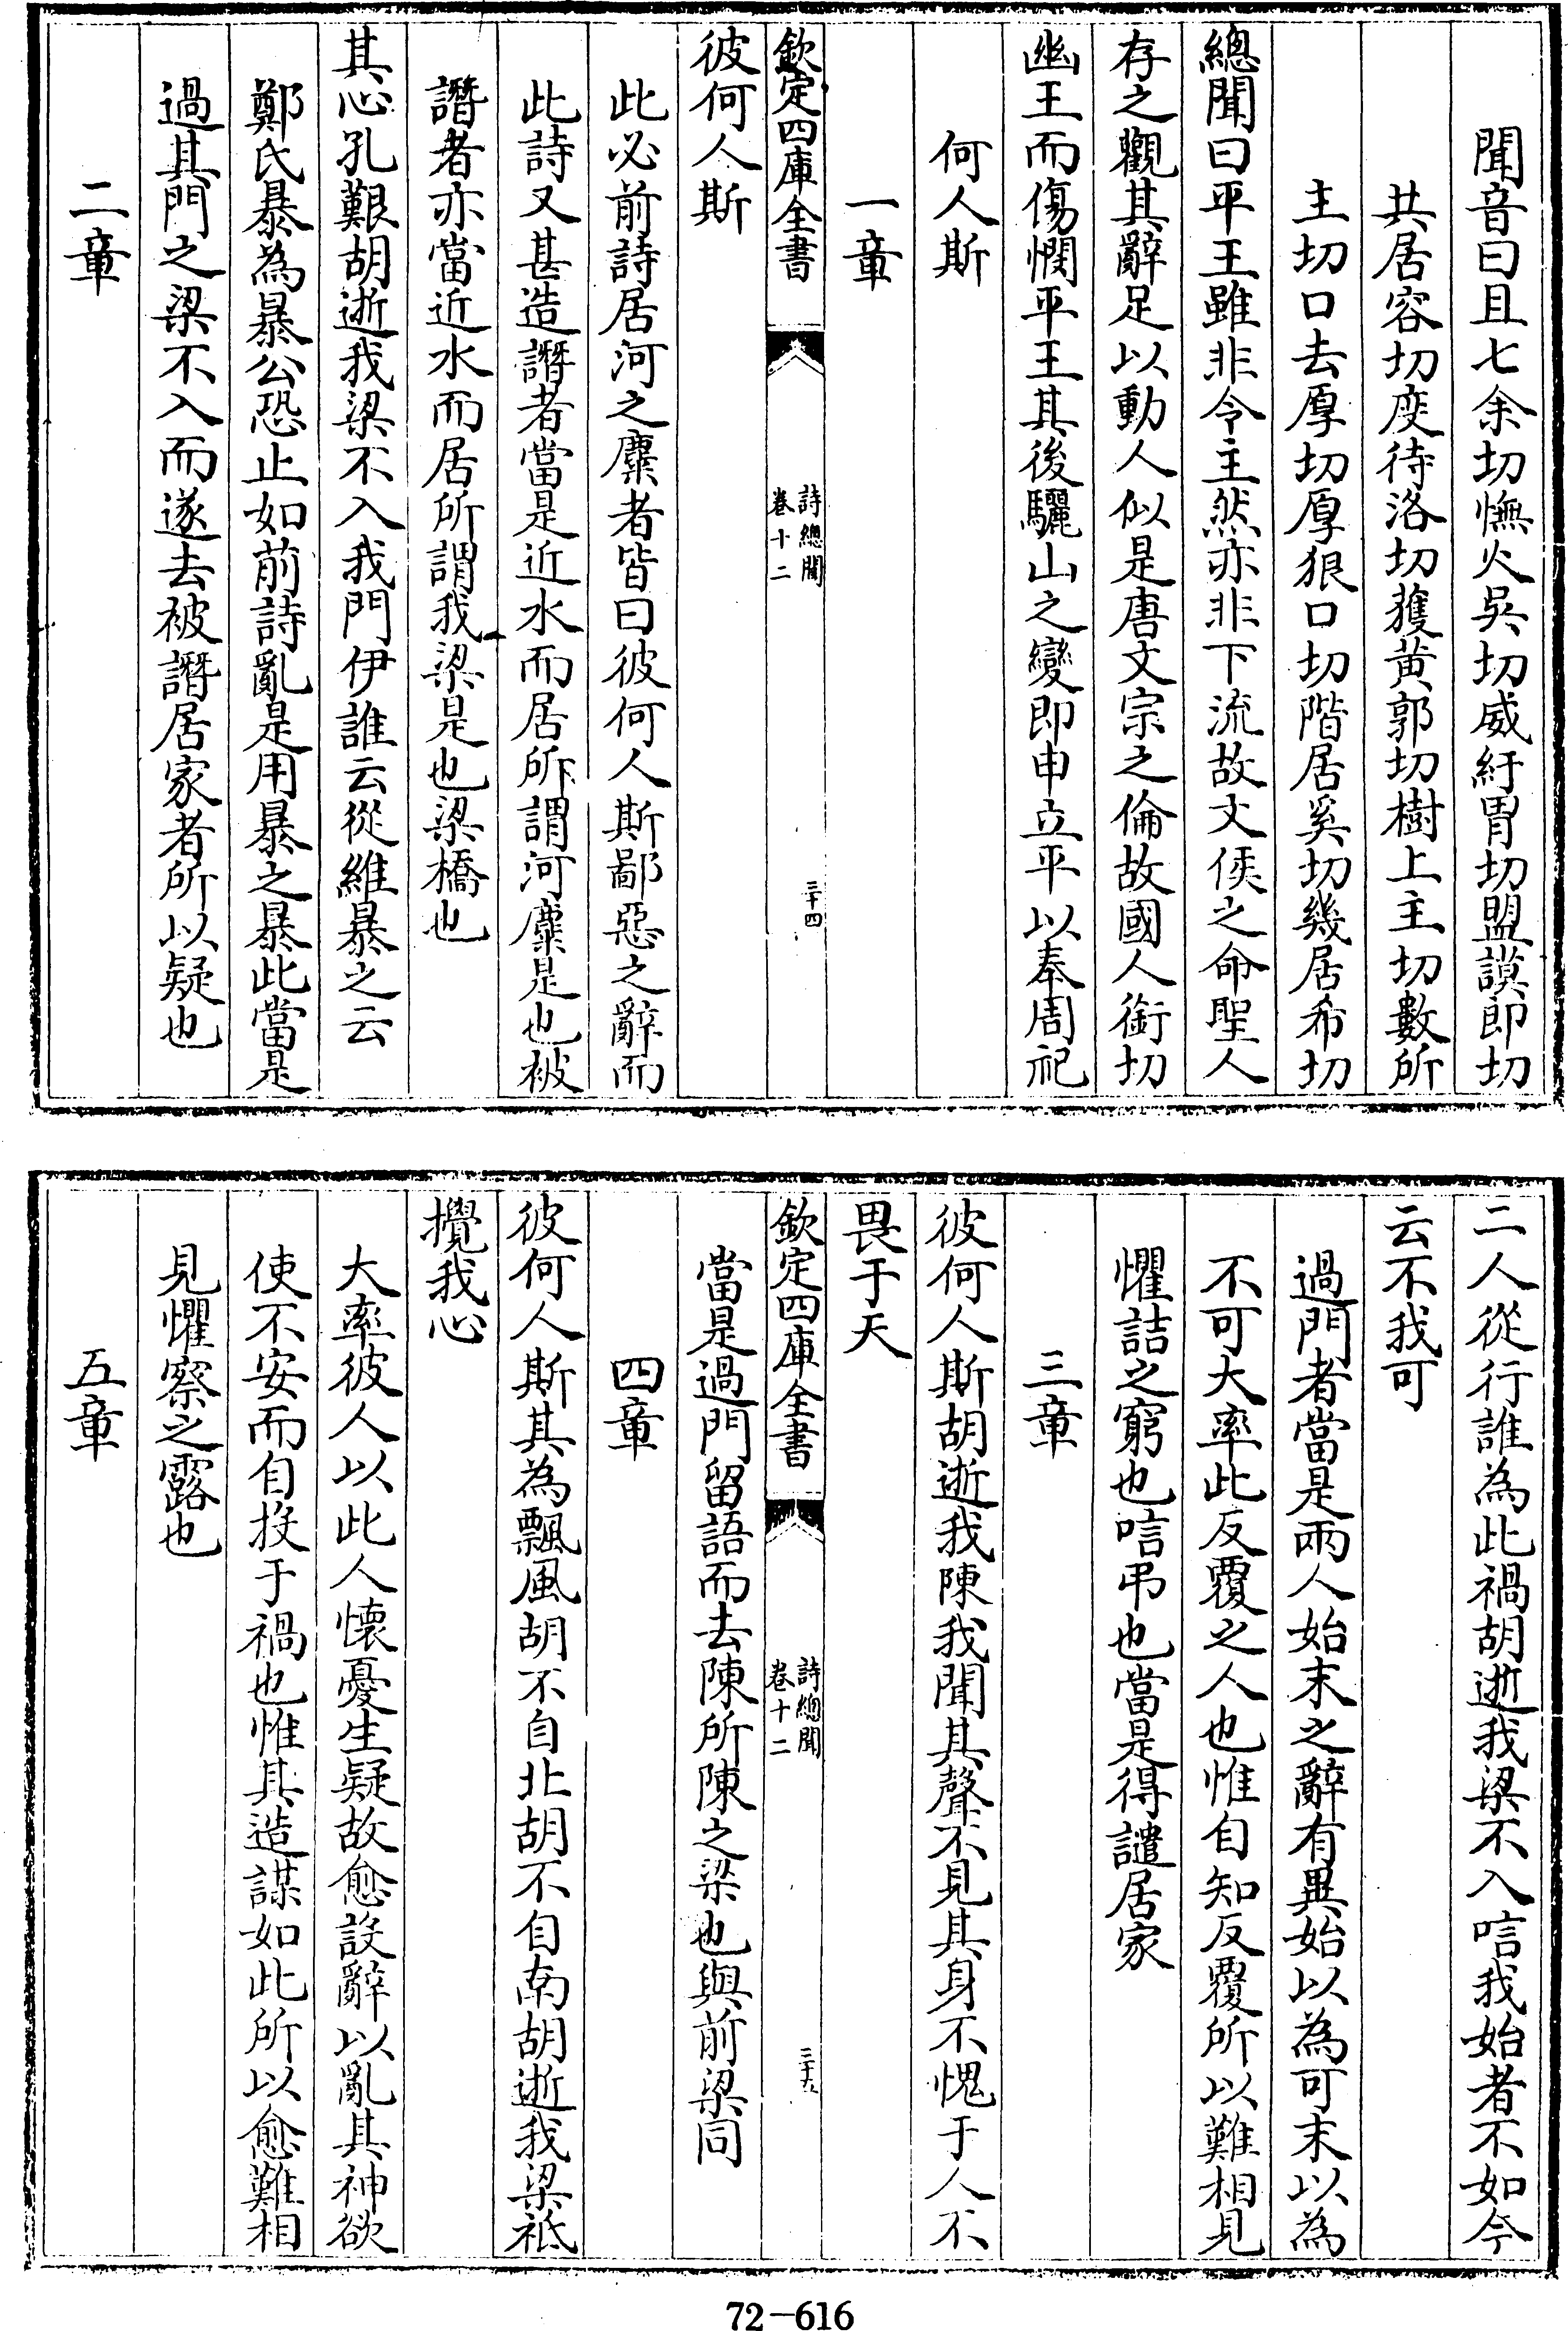 聞音曰且七余切憮火吳切威紆胃切盟謨郎切
共居容切度待洛切獲黃郭切樹上主切數所
主切口去厚切厚狠口切階居奚切幾居希切
總聞曰平王雖非令主然亦非下流故文侯之命聖人
存之觀其辭足以動人似是唐文宗之倫故國人銜切
幽王而傷憫平王其後驪山之變即申立平以奉周祀
何人斯
一章
欽定四庫全書
詩總聞
卷十二
三十四
彼何人斯
此必前詩居河之麋者皆曰彼何人斯鄙惡之辭而
此詩又甚造譖者當是近水而居所謂河麋是也被
譖者亦當近水而居所謂我梁是也梁橋也
其心孔艱胡逝我梁不入我門伊誰云從維暴之云
鄭氏暴為暴公恐止如前詩亂是用暴之暴此當是
過其門之梁不入而遂去被譖居家者所以疑也
二章
二人從行誰為此禍胡逝我梁不入唁我始者不如今
云不我可
過門者當是兩人始末之辭有異始以為可末以為
不可大率此反覆之人也惟自知反覆所以難相見
懼詰之窮也唁弔也當是得譴居家
三章
彼何人斯胡逝我陳我聞其聲不見其身不愧于人不
畏于天
欽定四庫全書
詩總聞
卷十二
三十五
當是過門留語而去陳所陳之梁也與前梁同
四章
彼何人斯其為飄風胡不自北胡不自南胡逝我梁祗
攪我心
大率彼人以此人懷憂生疑故愈設辭以亂其神欲
使不安而自投于禍也惟其造謀如此所以愈難相
見懼察之露也
五章
72-616